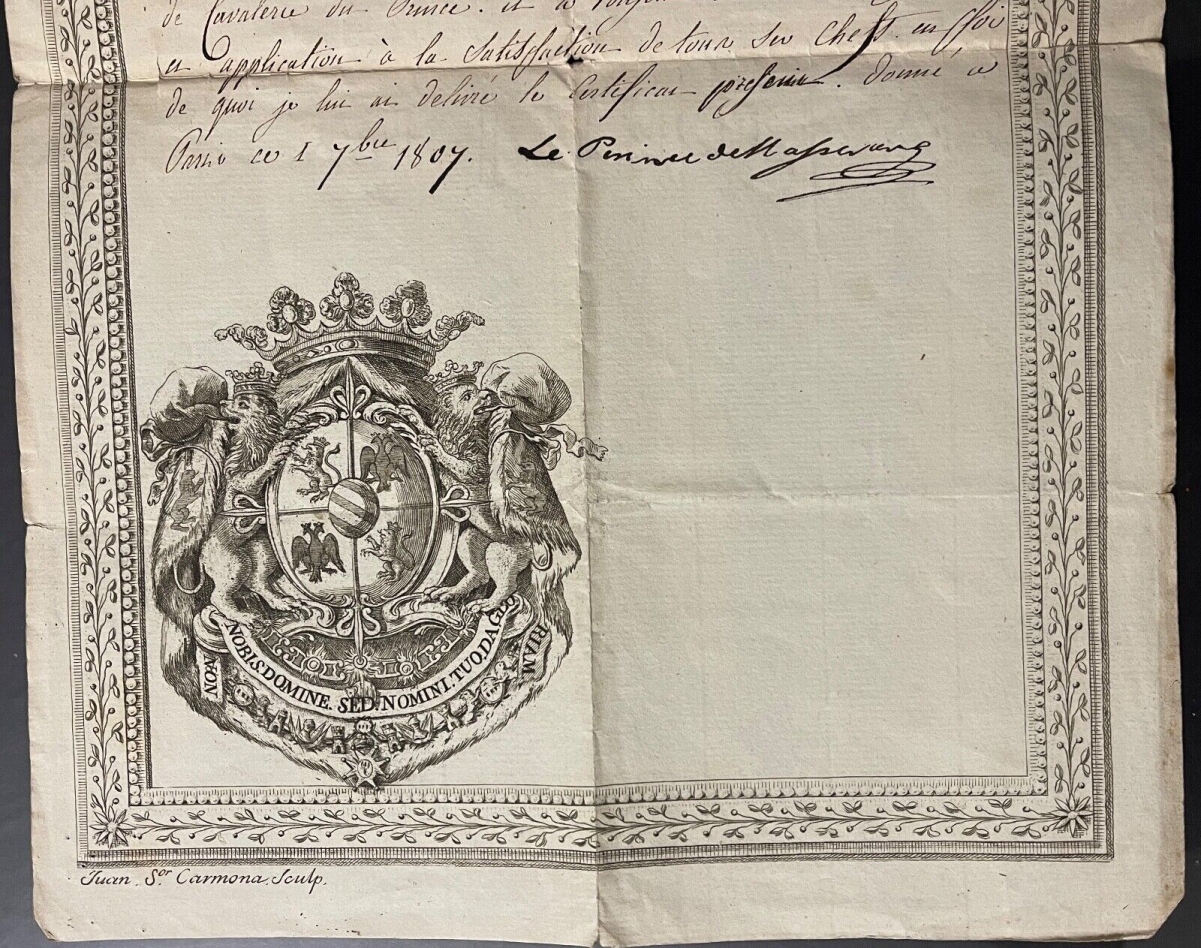 de Cavalerie du Prince. et a
et application à la Satisfaction de tous ses Chefs. en foi
de quoi je lui ai delivré le Certificat present. donné a
Paris ce 1 7bre 1807. Le Prince de Masserano
NON NOBIS DOMINE. SED. NOMINI. TUO. DA GLORIAM
Juan. Sor. Carmona. Sculp.